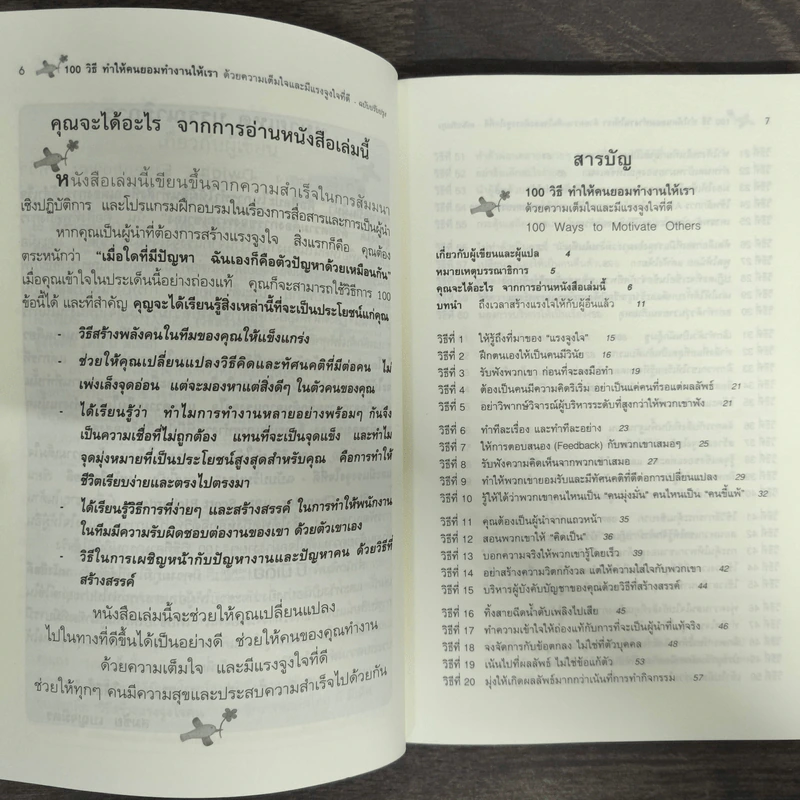 6 100 วิธี ทำให้คนยอมทำงานให้เรา ด้วยความเต็มใจและมีแรงจูงใจที่ดี - ฉบับปรับปรุง
คุณจะได้อะไร จากการอ่านหนังสือเล่มนี้
หนังสือเล่มนี้เขียนขึ้นจากความสำเร็จในการสัมมนา
เชิงปฏิบัติการ และโปรแกรมฝึกอบรมในเรื่องการสื่อสารและการเป็นผู้นำ
หากคุณเป็นผู้นำที่ต้องการสร้างแรงจูงใจ สิ่งแรกก็คือ คุณต้อง
ตระหนักว่า "เมื่อใดที่มีปัญหา ฉันเองก็คือตัวปัญหาด้วยเหมือนกัน"
เมื่อคุณเข้าใจในประเด็นนี้อย่างถ่องแท้ คุณก็จะสามารถใช้วิธีการ 100
ข้อนี้ได้ และที่สำคัญ คุณจะได้เรียนรู้สิ่งเหล่านี้ที่จะเป็นประโยชน์แก่คุณ
- วิธีสร้างพลังคนในทีมของคุณให้แข็งแกร่ง
- ช่วยให้คุณเปลี่ยนแปลงวิธีคิดและทัศนคติที่มีต่อคน ไม่
เพ่งเล็งจุดอ่อน แต่จะมองหาแต่สิ่งดีๆ ในตัวคนของคุณ
- ได้เรียนรู้ว่า ทำไมการทำงานหลายอย่างพร้อมๆ กันจึง
เป็นความเชื่อที่ไม่ถูกต้อง แทนที่จะเป็นจุดแข็ง และทำไม
จุดมุ่งหมายที่เป็นประโยชน์สูงสุดสำหรับคุณ คือการทำให้
ชีวิตเรียบง่ายและตรงไปตรงมา
- ได้เรียนรู้วิธีการที่ง่ายๆ และสร้างสรรค์ ในการทำให้พนักงาน
ในทีมมีความรับผิดชอบต่องานของเขา ด้วยตัวเขาเอง
- วิธีในการเผชิญหน้ากับปัญหางานและปัญหาคน ด้วยวิธีที่
สร้างสรรค์
หนังสือเล่มนี้จะช่วยให้คุณเปลี่ยนแปลง
ไปในทางที่ดีขึ้นได้เป็นอย่างดี ช่วยให้คนของคุณทำงาน
ด้วยความเต็มใจ และมีแรงจูงใจที่ดี
ช่วยให้ทุกๆ คนมีความสุขและประสบความสำเร็จไปด้วยกัน
7
สารบัญ
100 วิธี ทำให้คนยอมทำงานให้เรา
ด้วยความเต็มใจและมีแรงจูงใจที่ดี
100 Ways to Motivate Others
เกี่ยวกับผู้เขียนและผู้แปล 4
หมายเหตุบรรณาธิการ 5
คุณจะได้อะไร จากการอ่านหนังสือเล่มนี้ 6
บทนำ ถึงเวลาสร้างแรงใจให้กับผู้อื่นแล้ว 11
วิธีที่ 1 ให้รู้ถึงที่มาของ "แรงจูงใจ" 15
วิธีที่ 2 ฝึกตนเองให้เป็นคนมีวินัย 16
วิธีที่ 3 รับฟังพวกเขา ก่อนที่จะลงมือทำ 19
วิธีที่ 4 ต้องเป็นคนมีความคิดริเริ่ม อย่าเป็นแค่คนที่รอแต่ผลลัพธ์ 21
วิธีที่ 5 อย่าวิพากษ์วิจารณ์ผู้บริหารระดับที่สูงกว่าให้พวกเขาฟัง 21
วิธีที่ 6 ทำทีละเรื่อง และทำทีละอย่าง 23
วิธีที่ 7 ให้การตอบสนอง (Feedback) กับพวกเขาเสมอๆ 25
วิธีที่ 8 รับฟังความคิดเห็นจากพวกเขาเสมอ 27
วิธีที่ 9 ทำให้พวกเขายอมรับและมีทัศนคติที่ดีต่อการเปลี่ยนแปลง 29
วิธีที่ 10 รู้ให้ได้ว่าพวกเขาคนไหนเป็น "คนมุ่งมั่น" คนไหนเป็น "คนขี้แพ้" 32
วิธีที่ 11 คุณต้องเป็นผู้นำจากแถวหน้า 35
วิธีที่ 12 สอนพวกเขาให้ "คิดเป็น" 36
วิธีที่ 13 บอกความจริงให้พวกเขารู้โดยเร็ว 39
วิธีที่ 14 อย่าสร้างความวิตกกังวล แต่ให้ความใส่ใจกับพวกเขา 42
วิธีที่ 15 บริหารผู้บังคับบัญชาของคุณด้วยวิธีที่สร้างสรรค์ 44
วิธีที่ 16 ทิ้งสายฉีดน้ำดับเพลิงไปเสีย 45
วิธีที่ 17 ทำความเข้าใจให้ถ่องแท้กับการที่จะเป็นผู้นำที่แท้จริง 46
วิธีที่ 18 จงจัดการกับข้อตกลง ไม่ใช่ที่ตัวบุคคล 48
วิธีที่ 19 เน้นไปที่ผลลัพธ์ ไม่ใช่ข้อแก้ตัว 53
วิธีที่ 20 มุ่งให้เกิดผลลัพธ์มากกว่าเน้นที่การทำกิจกรรม 57